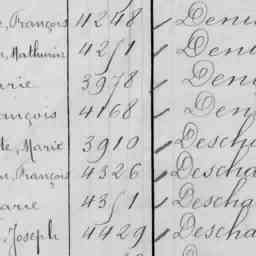 , François 4248 Deni
, Mathurin 4251 Den
arie 3978 Den
ançois 4168 Den
te, Marie 3910 Descha
n, François 4326 Descha
arie 4351 Descha
, Joseph 4429 Descha